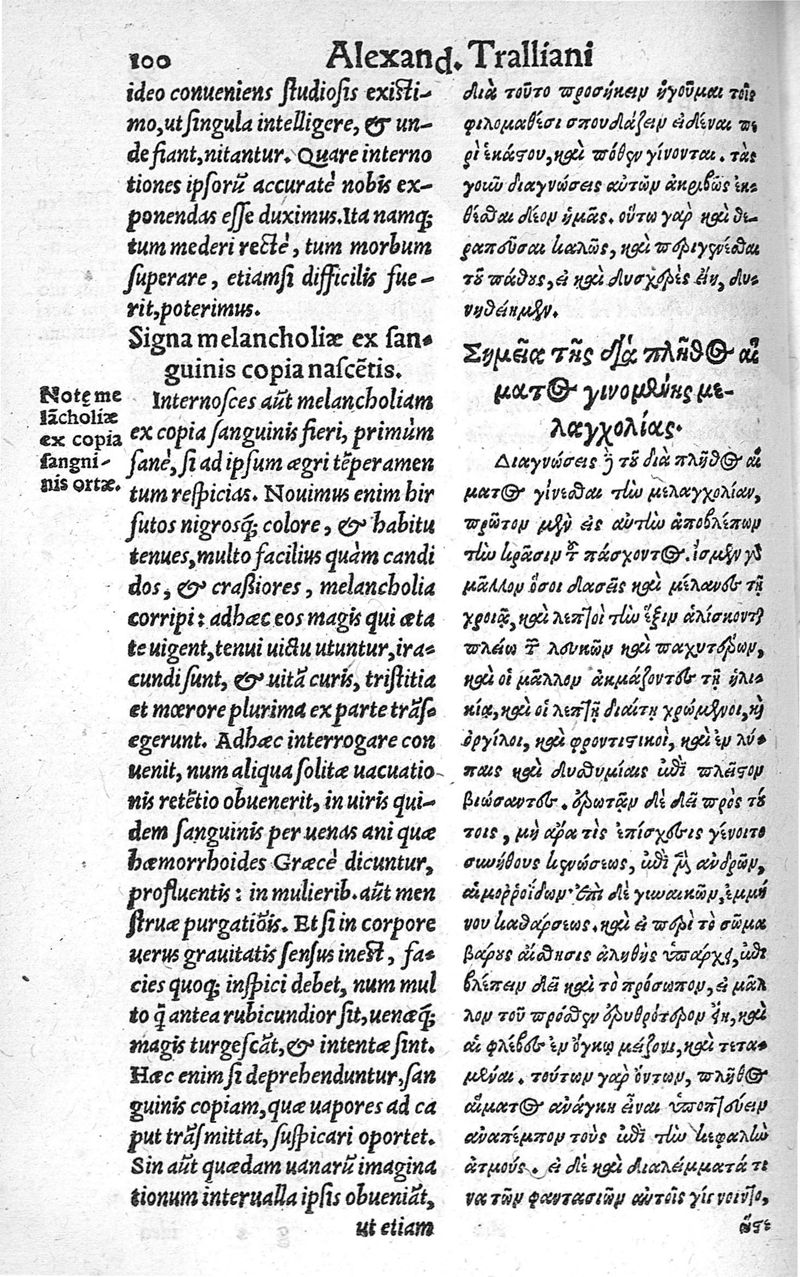 100 Alexand. Tralliani
ideo conueniens studiosis existi-
mo, ut singula intelligere, & un-
de fiant, nitantur. Quare interno
tiones ipsorũ accuratè nobis ex-
ponendas esse duximus. Ita namq;
tum mederi rectè, tum morbum
superare, etiamsi difficilis fue-
rit, poterimus.
Signa melancholiæ ex san-
guinis copia nascẽtis.
Notę me
lãcholiæ
ex copia
sangni-
nis ortæ.
Internosces aũt melancholiam
ex copia sanguinis fieri, primùm
sanè, si ad ipsum ægri tẽperamen
tum respicias. Nouimus enim hir
sutos nigrosq; colore, & habitu
tenues, multo facilius quàm candi
dos, & crassiores, melancholia
corripi: adhæc eos magis qui æta
te uigent, tenui uictu utuntur, ira-
cundi sunt, & uitã curis, tristitia
et mœrore plurima ex parte trãs-
egerunt. Adhæc interrogare con
uenit, num aliqua solitæ uacuatio-
nis retẽtio obuenerit, in uiris qui-
dem sanguinis per uenas ani quæ
hæmorrhoides Græcè dicuntur,
profluentis: in mulierib. aũt men
struæ purgatiõis. Et si in corpore
uerus grauitatis sensus inest, fa-
cies quoq; inspici debet, num mul
to q̃ antea rubicundior sit, uenæq;
magis turgescãt, & intentæ sint.
Hæc enim si deprehenduntur, san
guinis copiam, quæ uapores ad ca
put trãsmittat, suspicari oportet.
Sin aũt quædam uanarũ imagina
tionum interualla ipsis obueniãt,
ut etiam
διὰ τοῦτο προσήκειν ἡγοῦμαι τοῖς
φιλομαθέσι σπουδάζειν εἰδέναι πε
ρὶ ἑκάστου, καὶ πόθεν γίνονται. τὰς
γοῦν διαγνώσεις αὐτῶν ἀκριβῶς ἐκ-
θέσθαι δέον ἡμᾶς. οὕτω γὰρ καὶ θε-
ραπεῦσαι καλῶς, καὶ περιγενέσθαι
τοῦ πάθους, εἰ καὶ δυσχερὲς εἴη, δυ-
νηθείημεν.
Σημεῖα τῆς διὰ πλῆθος αἵ
ματος γινομένης με-
λαγχολίας.
Διαγνώσεις δὲ τοῦ διὰ πλῆθος αἵ
ματος γίνεσθαι τὴν μελαγχολίαν,
πρῶτον μὲν εἰς αὐτὴν ἀποβλέπων
τὴν κρᾶσιν τοῦ πάσχοντος. ἴσμεν γὰρ
μᾶλλον ὅσοι δασεῖς καὶ μέλανες τῇ
χροιᾷ, καὶ λεπτοὶ τὴν ἕξιν ἁλίσκονται
πλείω τῶν λευκῶν καὶ παχυτέρων,
καὶ οἱ μᾶλλον ἀκμάζοντες τῇ ἡλι-
κίᾳ, καὶ οἱ λεπτῇ διαίτῃ χρώμενοι, καὶ
ὀργίλοι, καὶ φροντιστικοὶ, καὶ ἐν λύ-
παις καὶ δυσθυμίαις ἐπὶ πλεῖστον
βιώσαντες. ἐρωτᾷν δὲ δεῖ πρὸς τού
τοις, μὴ ἄρα τὶς ἐπίσχεσις γένοιτο
συνήθους κενώσεως, ἐπὶ μὲν ἀνδρῶν,
αἱμορροΐδων· ἐπὶ δὲ γυναικῶν, ἐμμή
νου καθάρσεως. καὶ εἰ περὶ τὸ σῶμα
βάρους αἴσθησις ἀληθὴς ὑπάρχει, ἐπι
βλέπειν δεῖ καὶ τὸ πρόσωπον, εἰ μᾶλ
λον τοῦ πρόσθεν ἐρυθρότερον ᾖν, καὶ
αἱ φλέβες ἐν ὄγκῳ μείζονι, καὶ τετα-
μέναι. τούτων γὰρ ὄντων, πλῆθος
αἵματος ἀνάγκη εἶναι ὑποπτεύειν
ἀναπέμπον τοὺς ἐπὶ τὴν κεφαλὴν
ἀτμούς. εἰ δὲ καὶ διαλείμματά τι
να τῶν φαντασιῶν αὐτοῖς γίγνοιντο,
ὥστε